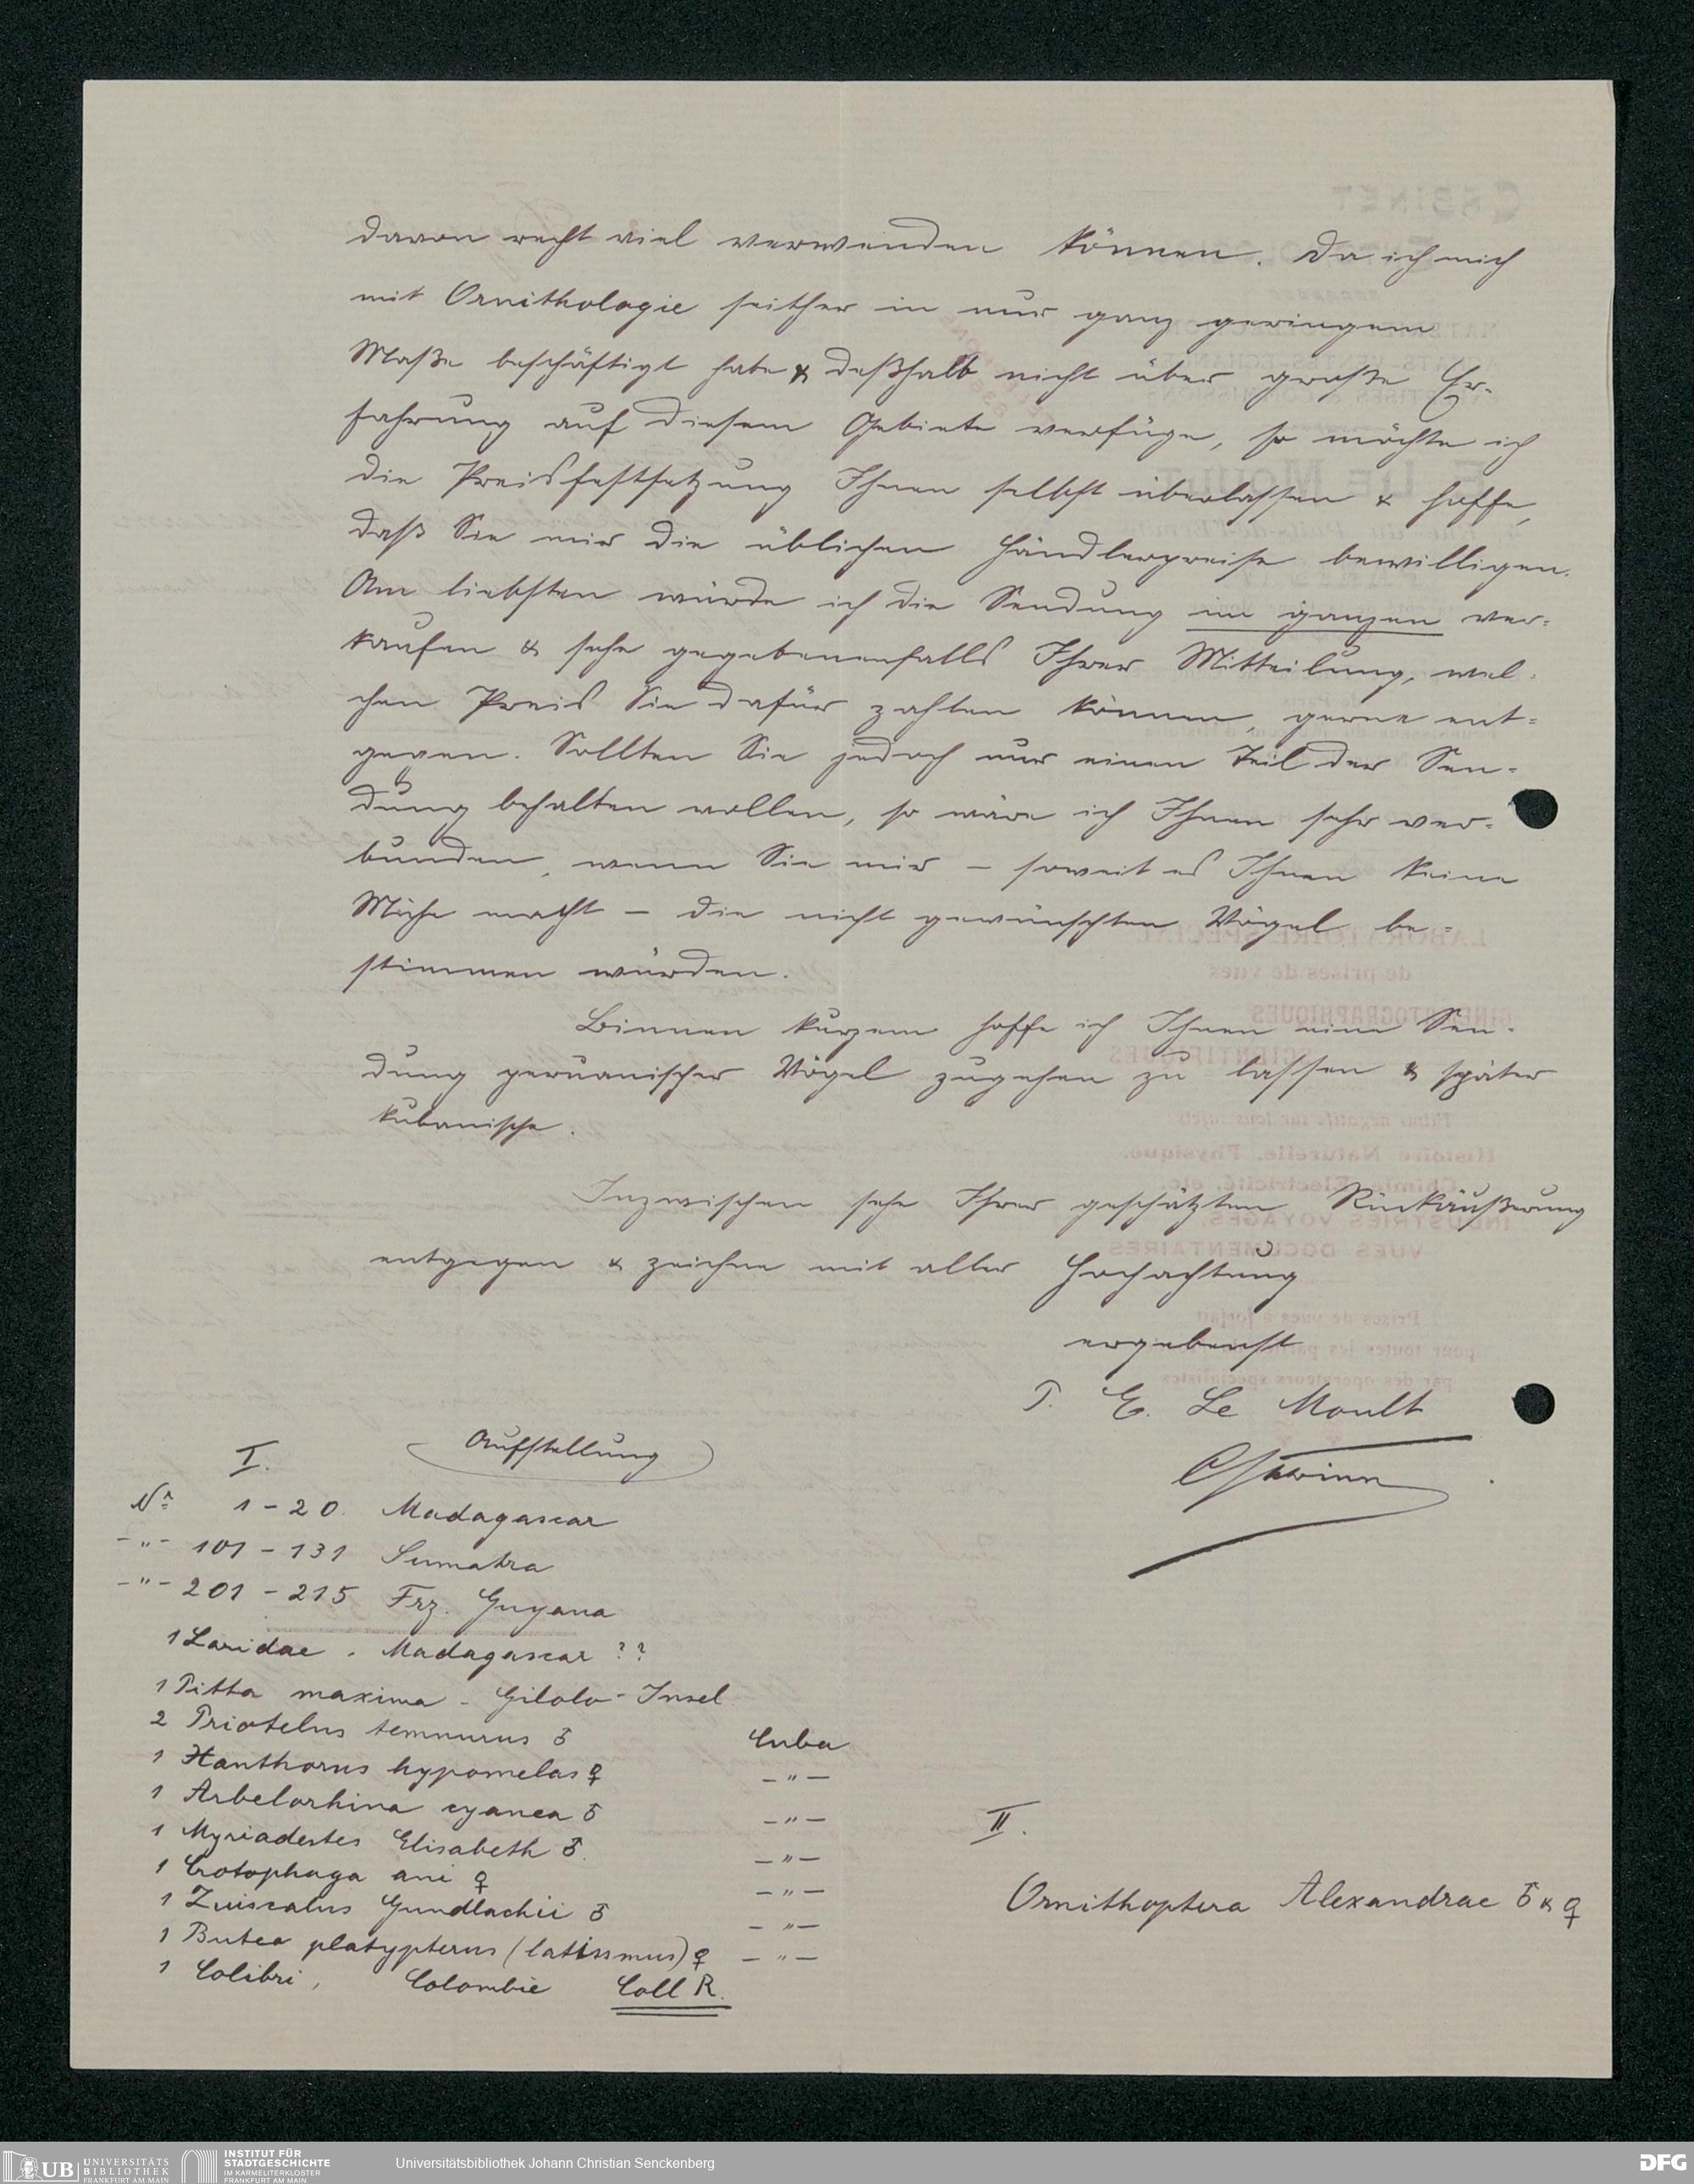 davon recht viel verwenden können. Da ich mich
mit Ornithologie seither in nur ganz geringem
Maße beschäftigt habe & deßhalb nicht über große Er-
fahrung auf diesem Gebiete verfüge, so möchte ich
die Preisfestsetzung Ihnen selbst überlassen & hoffe,
daß Sie mir die üblichen Händlerpreise bewilligen.
Am liebsten würde ich die Sendung im ganzen ver-
kaufen & sehe gegebenenfalls Ihrer Mitteilung, wel-
chen Preis Sie dafür zahlen können, gerne ent-
gegen. Sollten Sie jedoch nur einen Teil der Sen-
dung behalten wollen, so wäre ich Ihnen sehr ver-
bunden, wenn Sie mir – soweit es Ihnen keine
Mühe macht – die nicht gewünschten Vögel be-
stimmen würden.
Binnen kurzem hoffe ich Ihnen eine Sen-
dung peruanischer Vögel zugehen zu lassen & später
kubanische.
Inzwischen sehe Ihrer geschätzten Rückäußerung
entgegen & zeichne mit aller Hochachtung
ergebenst
P. E. Le Moult
Aufstellung
I.
No 1 – 20. Madagascar
–"– 101 – 131 Sumatra
–"– 201 – 215 Frz. Guyana
1 Laridae. Madagascar ??
1 Pitta maxima – Gilolo-Insel
2 Priotelus temnurus ♂ Cuba
1 Xanthorus hypomelas ♀ –"–
1 Arbelorhina cyanea ♂ –"–
1 Myriadestes Elisabeth ♂. –"–
1 Crotophaga ani ♀ –"–
1 Quiscalus Gundlachii ♂ –"–
1 Buteo platypterus (latissmus) ♀ –"–
1 Colibri, Colombie Coll R.
II.
Ornithoptera Alexandrae ♂ & ♀
UB UNIVERSITÄTS
BIBLIOTHEK
FRANKFURT AM MAIN
INSTITUT FÜR
STADTGESCHICHTE
IM KARMELITERKLOSTER
FRANKFURT AM MAIN
Universitätsbibliothek Johann Christian Senckenberg
DFG